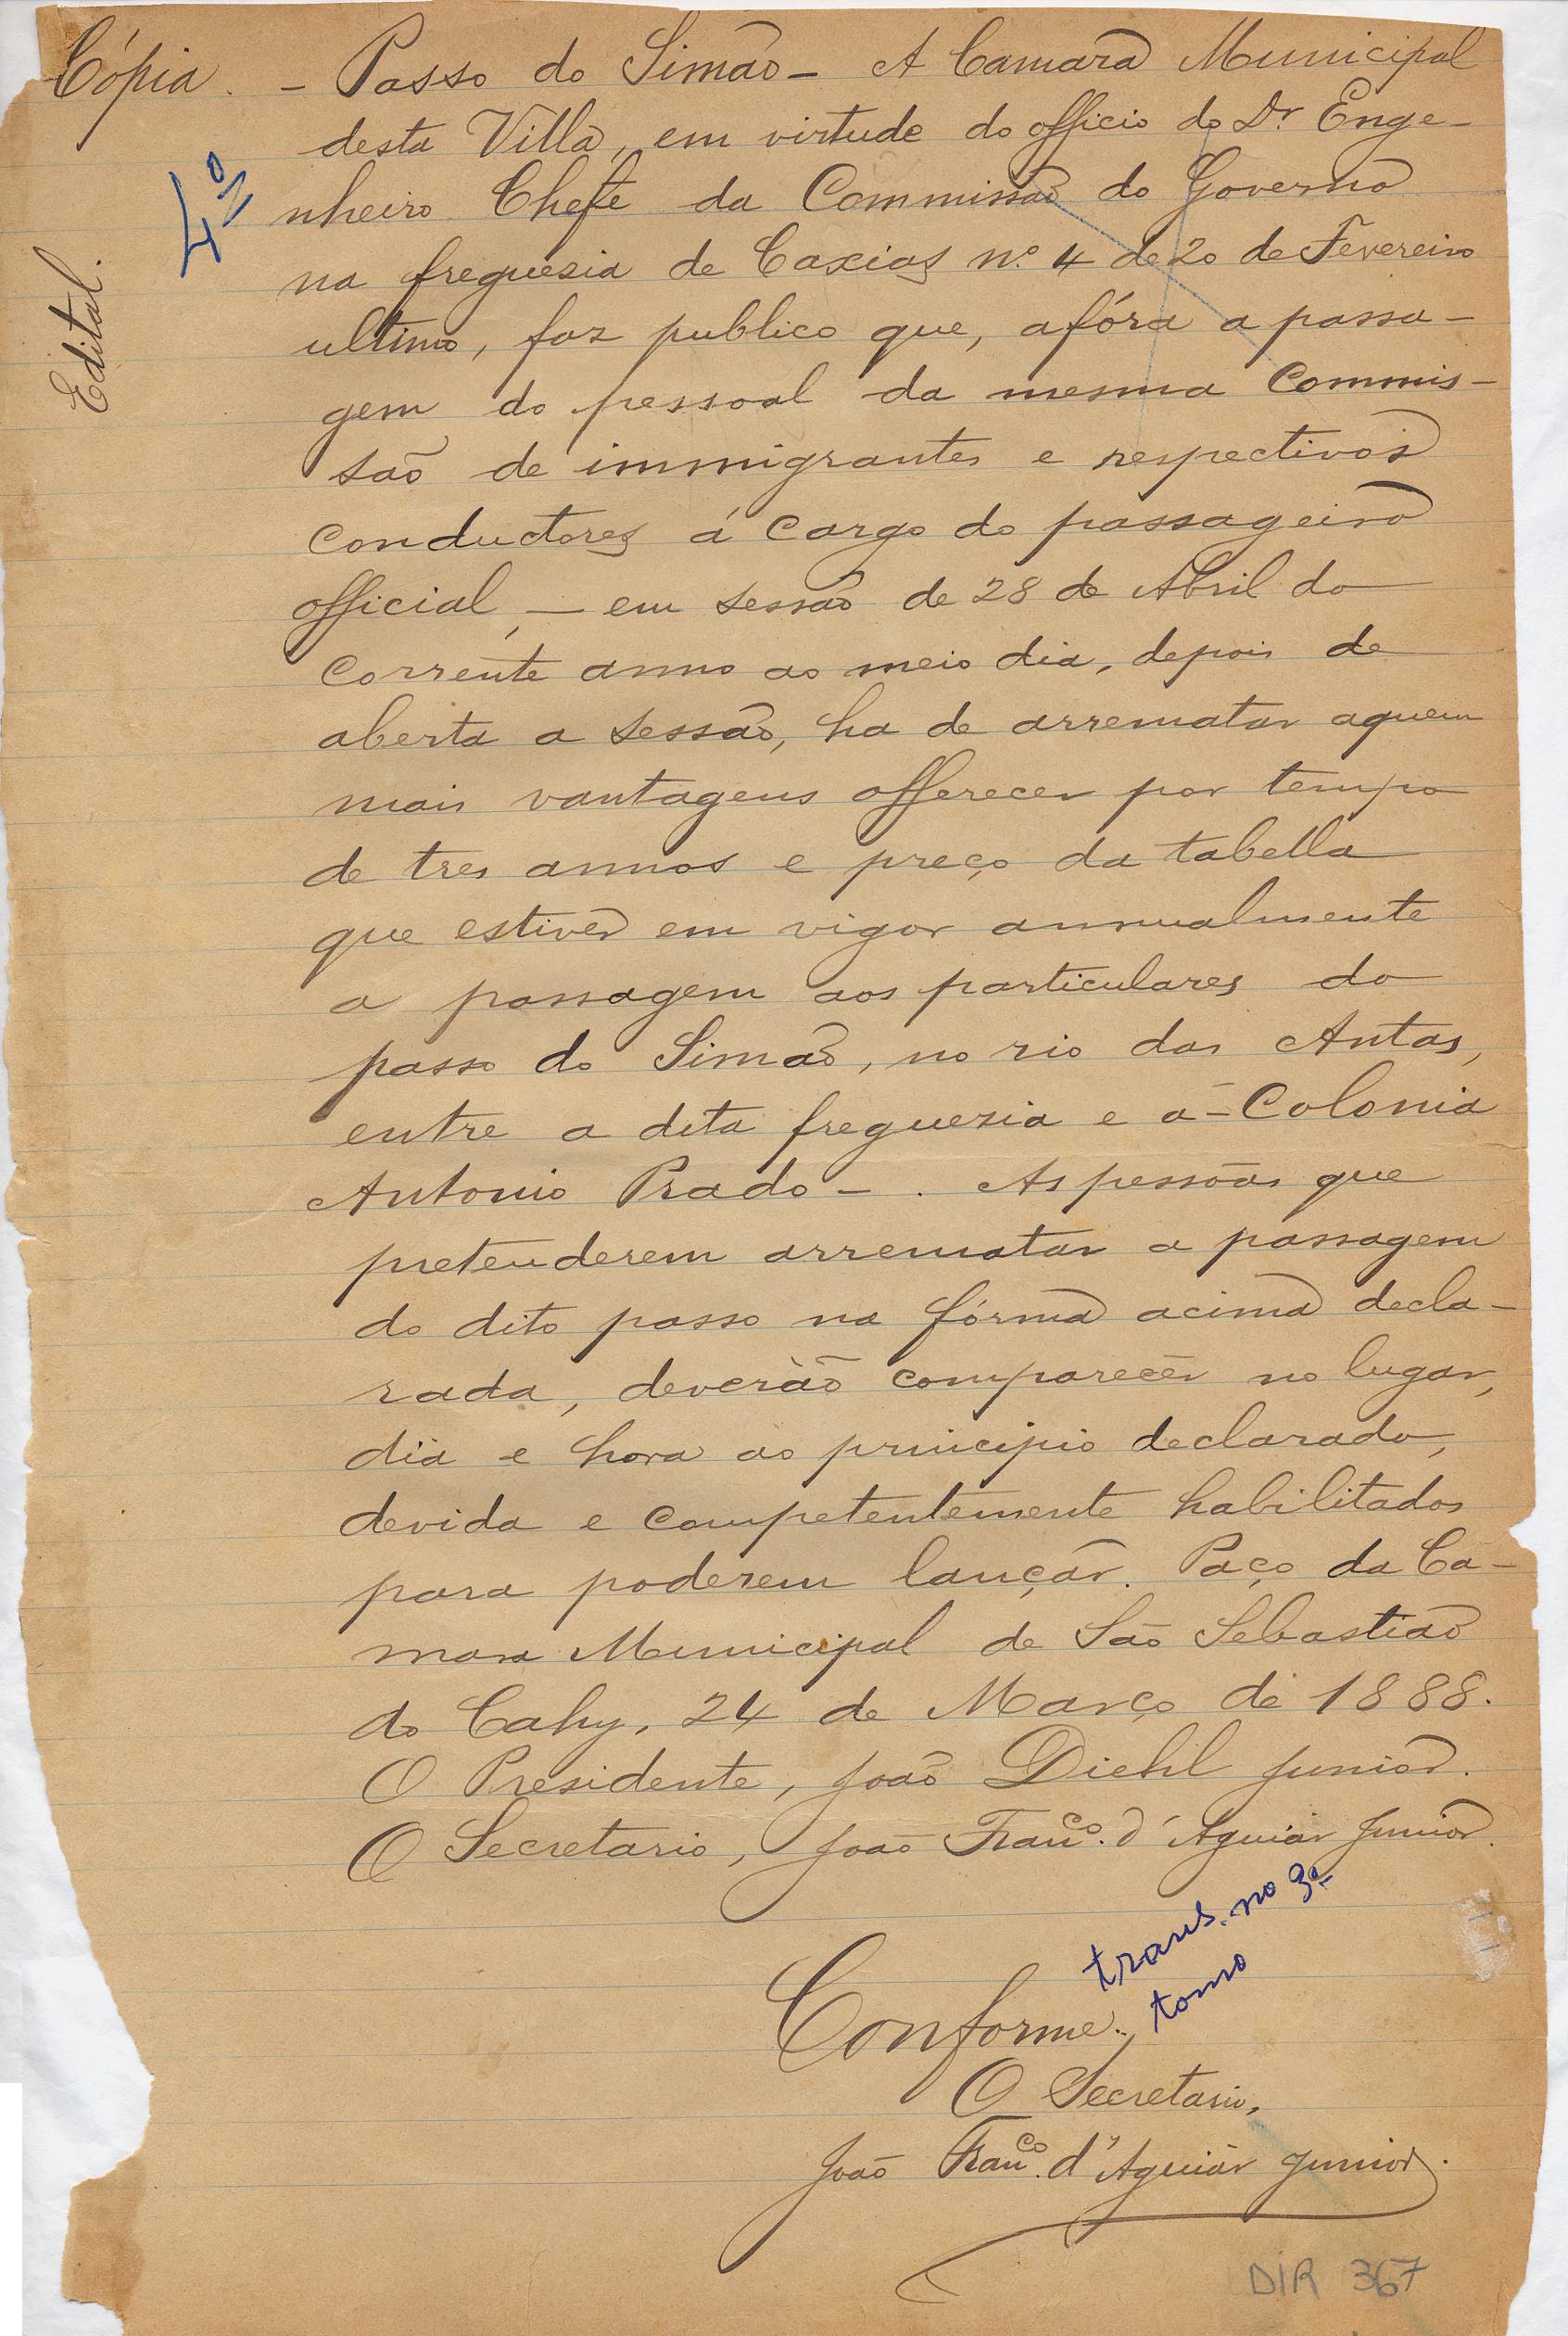 Cópia. – Passo do Simão – A Camara Municipal
desta Villa, em virtude do officio do Dr Enge-
4º
nheiro Chefe da Commissão do Governo
na freguesia de Caxias nº 4 de 20 de Fevereiro
Edital.
ultimo, faz publico que, afóra a passa-
gem do pessoal da mesma Commis-
são de immigrantes e respectivos
conductores á cargo do passageiro
official, – em sessão de 28 de Abril do
corrente anno ao meio dia, depois de
aberta a sessão, ha de arrematar aquem
mais vantagens offerecer por tempo
de tres annos e preço da tabella
que estiver em vigor annualmente
a passagem aos particulares do
passo do Simão, no rio das Antas,
entre a dita freguezia e a – Colonia
Antonio Prado – . As pessôas que
pretenderem arrematar a passagem
do dito passo na fórma acima decla-
rada, deverão comparecer no lugar,
dia e hora ao principio declarado,
devida e competentemente habilitados
para poderem lançar. Paço da Ca-
mara Municipal de São Sebastião
do Cahy, 24 de Março de 1888.
O Presidente, João Diehl Junior.
O Secretario, João Franco. d'Aguiar Junior.
trans. no 3º
tomo
Conforme.
O Secretario,
João Franco. d'Aguiar Junior.
DIR 367